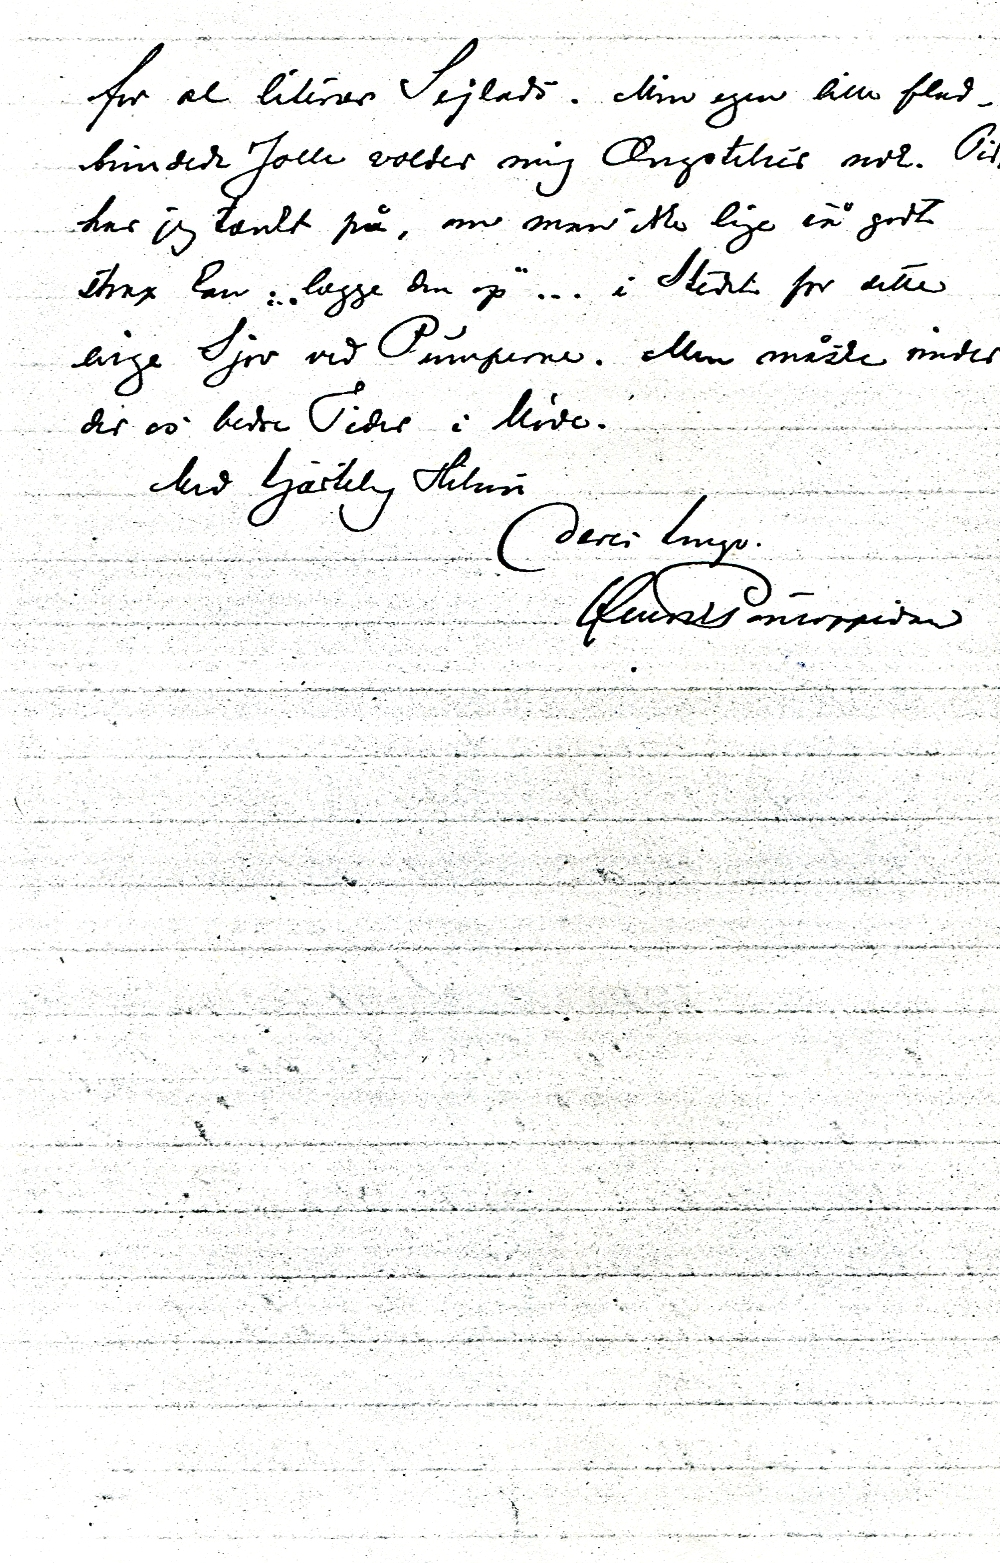 for al literær Sejlads. Min egen lille flad-
bundede Jolle volder mig Ængstelser nok. Tit
har jeg tænkt på, om man ikke lige så godt
strax kan „lægge den op“ ... i Stedet for dette
evige Sjov ved Pumperne. Men måske vinder
der os bedre Tider i Møde.
Med hjærtelig Hilsen
Deres hengv.
Henrik Pontoppidan